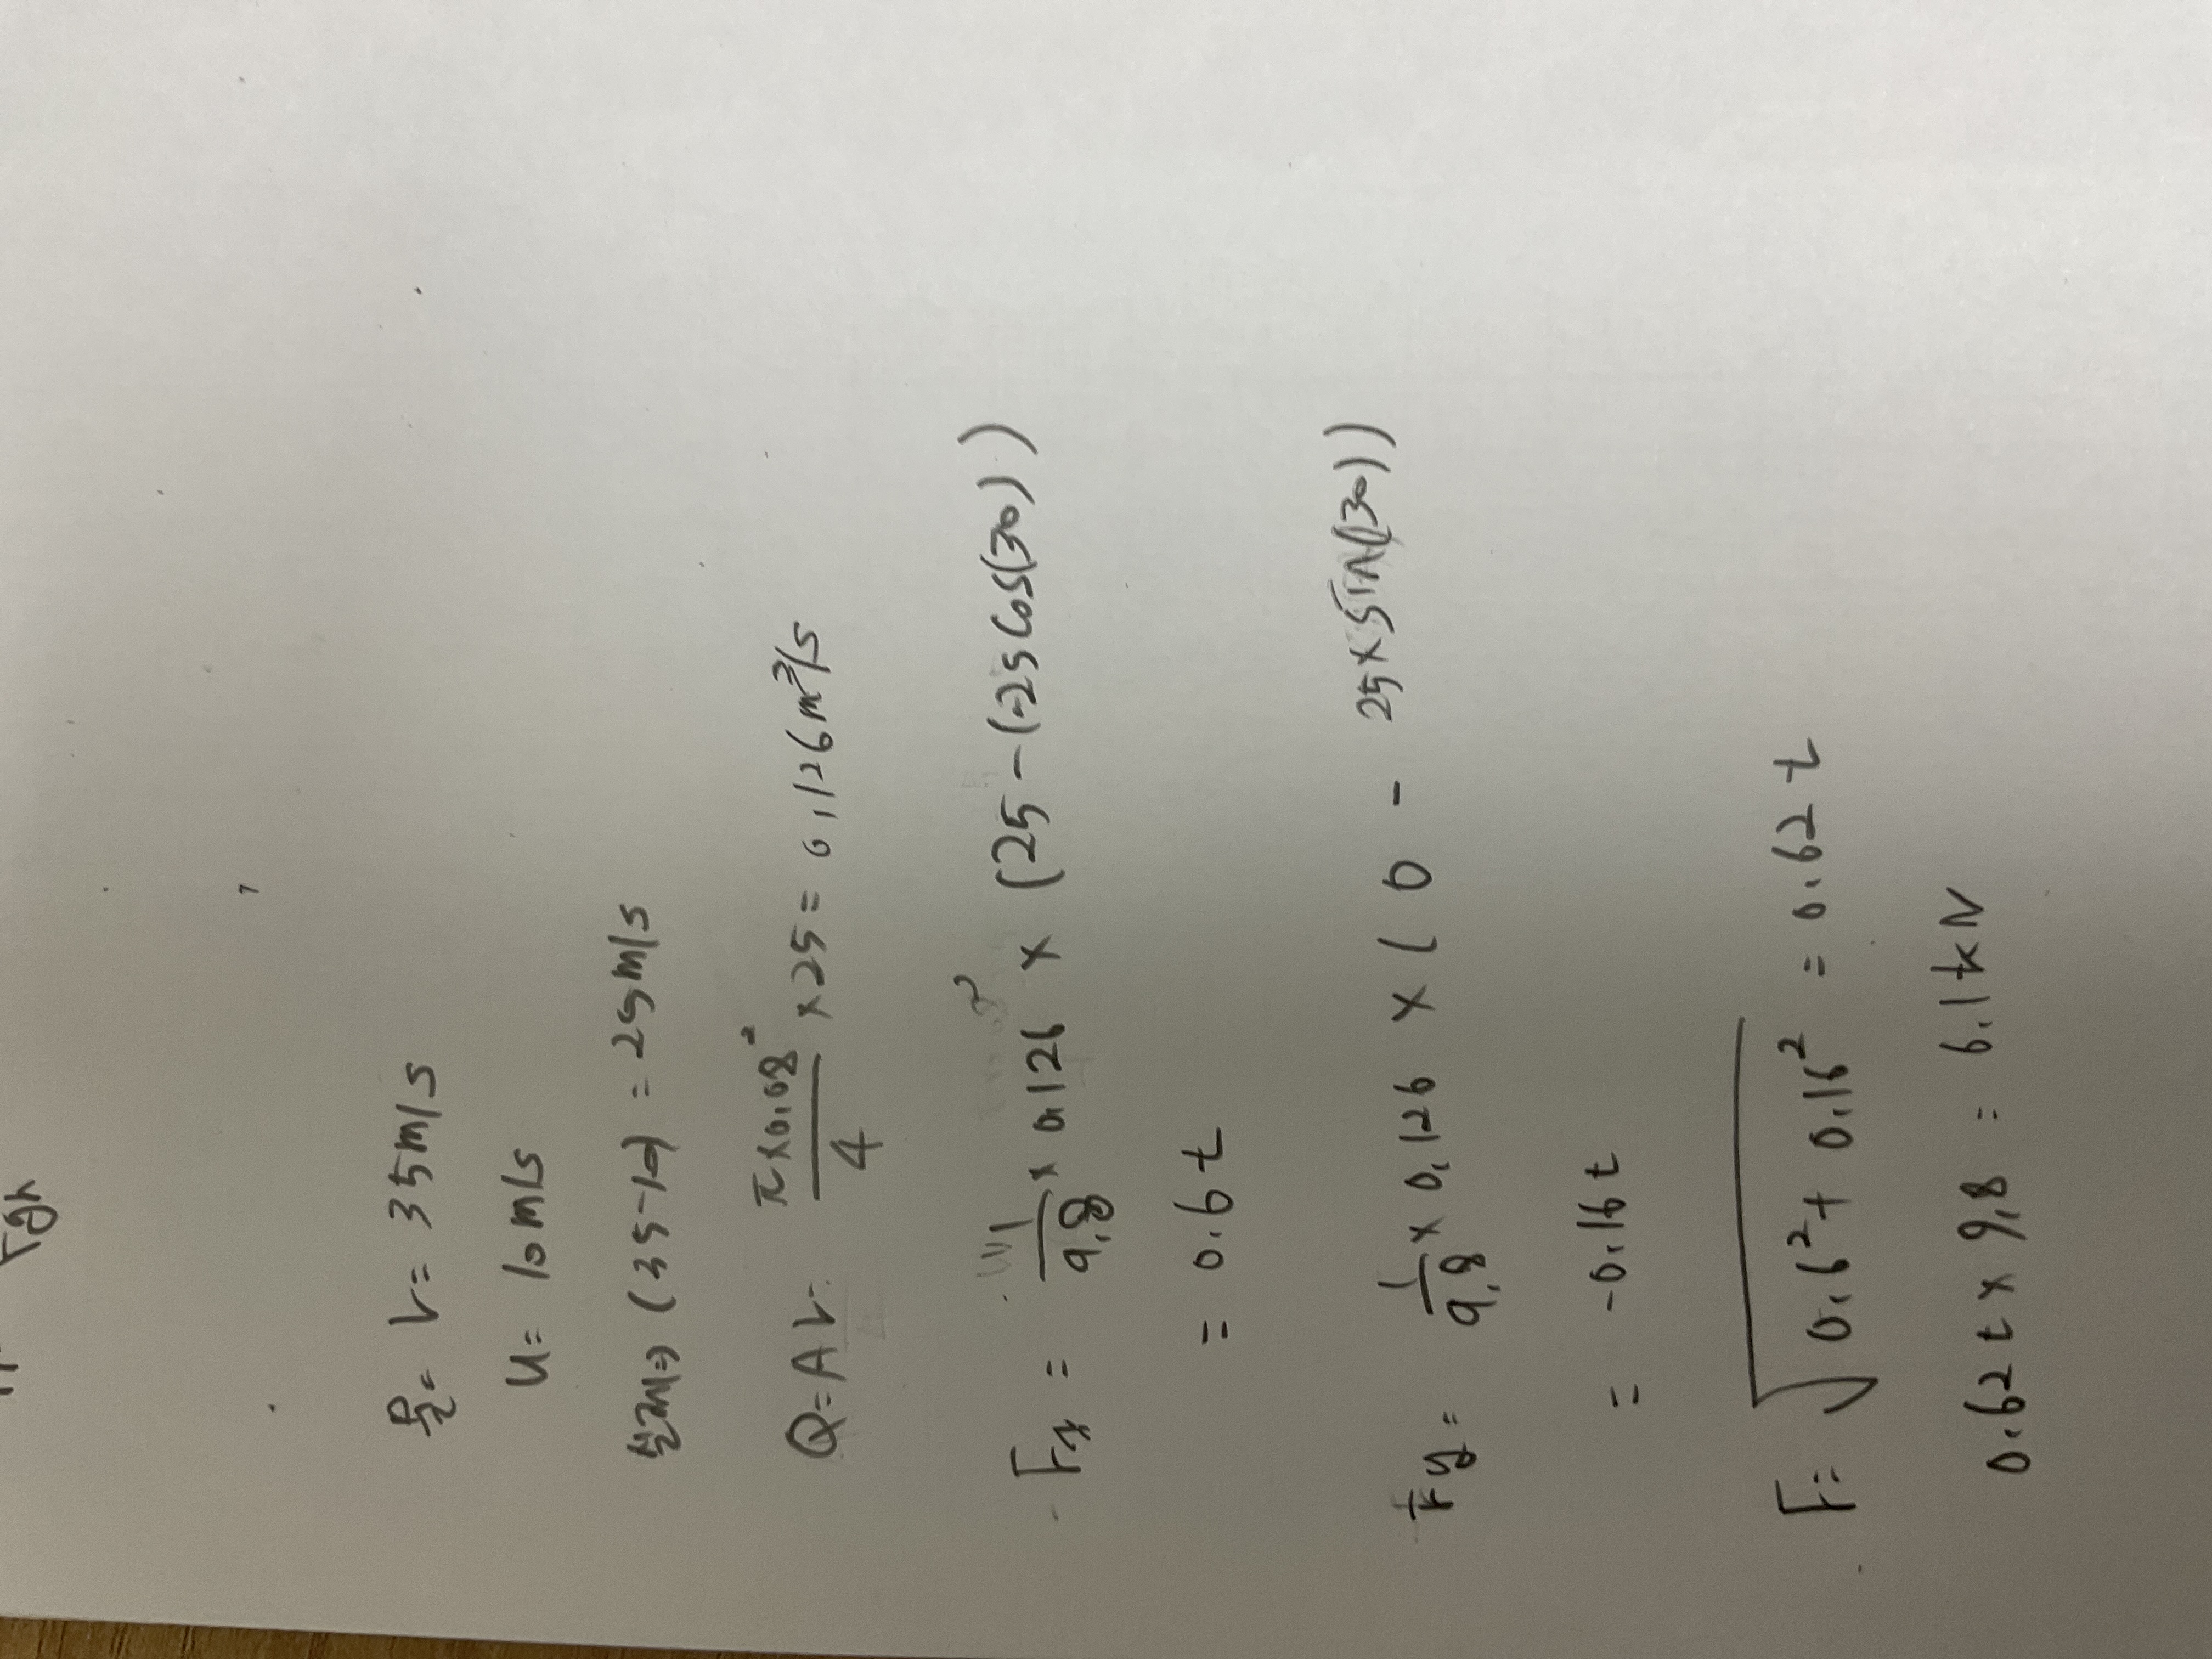 물= V= 35m/s
u= 10m/s
실제 ⇒ (35-10) = 25m/s
Q=AV. π×0.08² / 4 ×25= 0.126m³/s
Fx = 1/9.8 × 0.126 × (25-(-25cos(30)))
= 0.6t
Fy= 1/9.8 × 0.126 × (0 - 25×sin(30))
= -0.16t
F= √0.6²+0.16² = 0.62t
0.62t×9.8 = 6.1kN